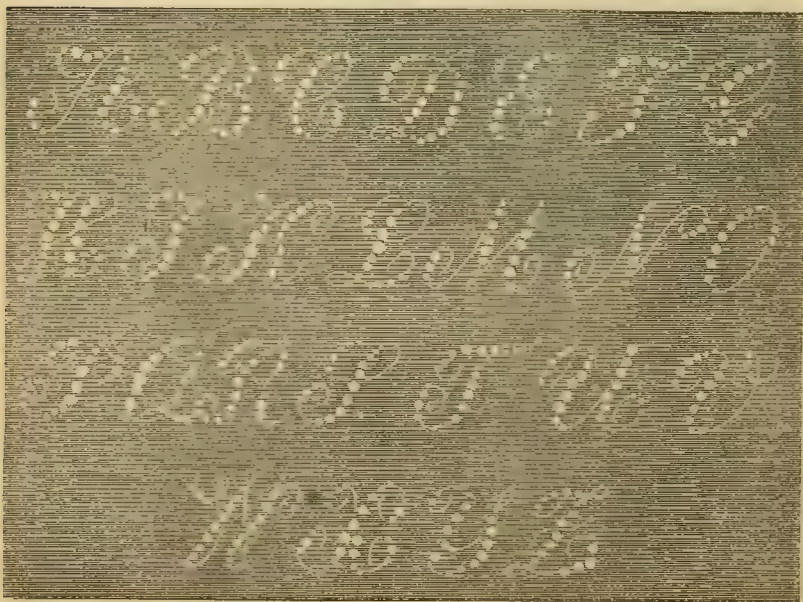 A B C D E F G
H I K L M N O
P Q R S T U V
W X Y Z